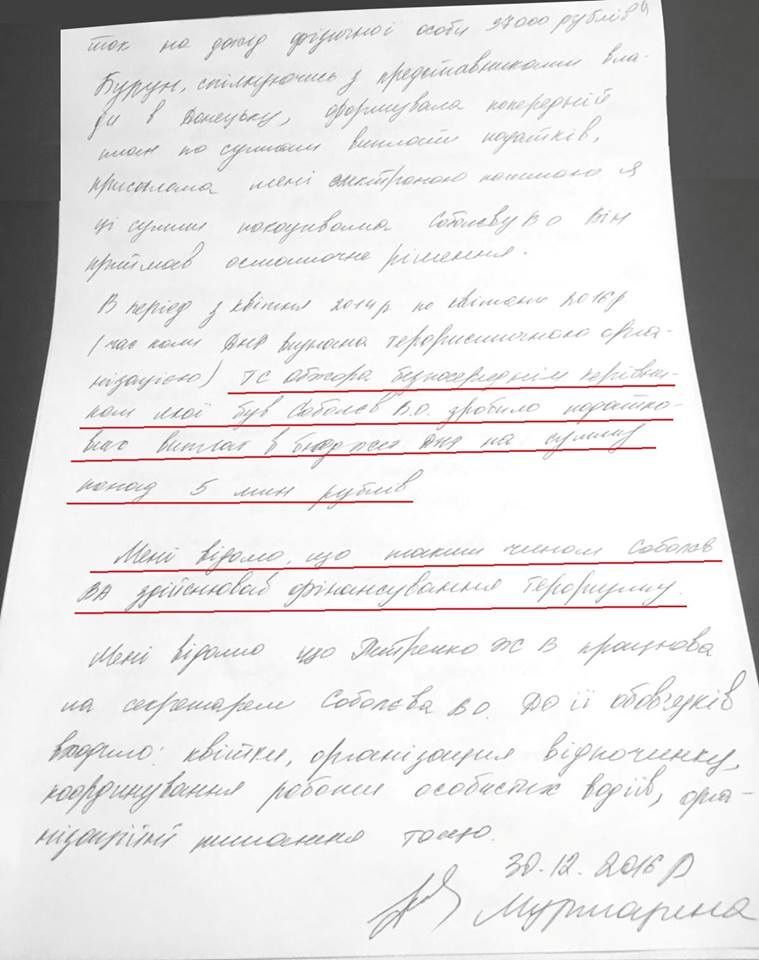 ток на дохід фізичної особи 97000 рублів
Бурун, спілкуючись з представниками вла-
ди в Донецьку, формувала попередній
план по сумам виплати податків,
присилала мені електроною поштою я
ці сумми показувала Соболєву В О Він
приймав остаточне рішення.
В період з квітня 2014 р по квітень 2016 р
(час коли ДНР визнана терористичною орга-
нізацією) ТС Обжора безпосереднім керівни-
ком якої був Соболєв В.О. зробило податко-
вих виплат в бюджет ДНР на сумму
понад 5 млн рублів
Мені відомо, що таким чином Соболєв
ВА здійснював фінансування тероризму.
Мені відомо що Петренко Ж В працюва
ла секретарем Соболєва В О. До її обовʼязків
входило: квітки, організация відпочинку,
координування роботи особистих водіїв, орга-
нізаційні питання тощо.
30.12.2016 р